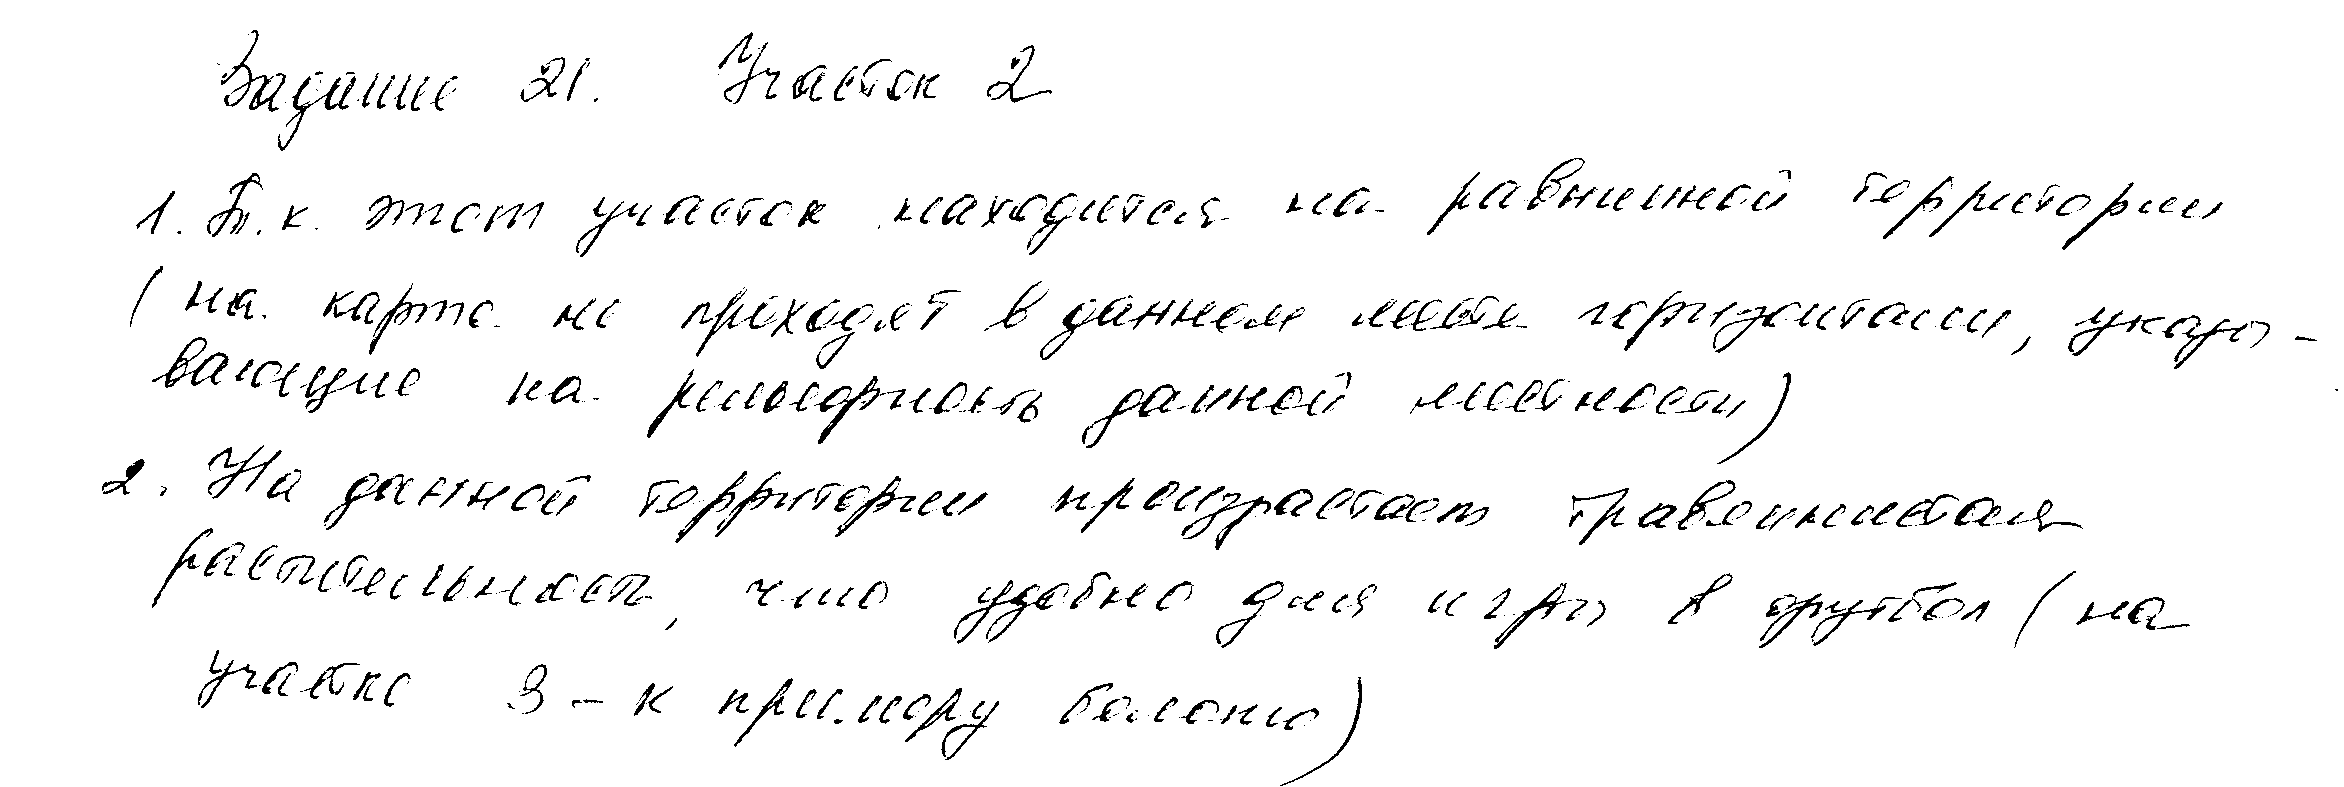 Задание 21. Участок 2
1. Т.к. этот участок находится на равнинной территории
(на карте не проходят в данном месте горизонтали, указы-
вающие на рельефность данной местности)
2. На данной территории произрастает травянистая
растительность, что удобно для игры в футбол (на
участке 3 - к примеру болото)